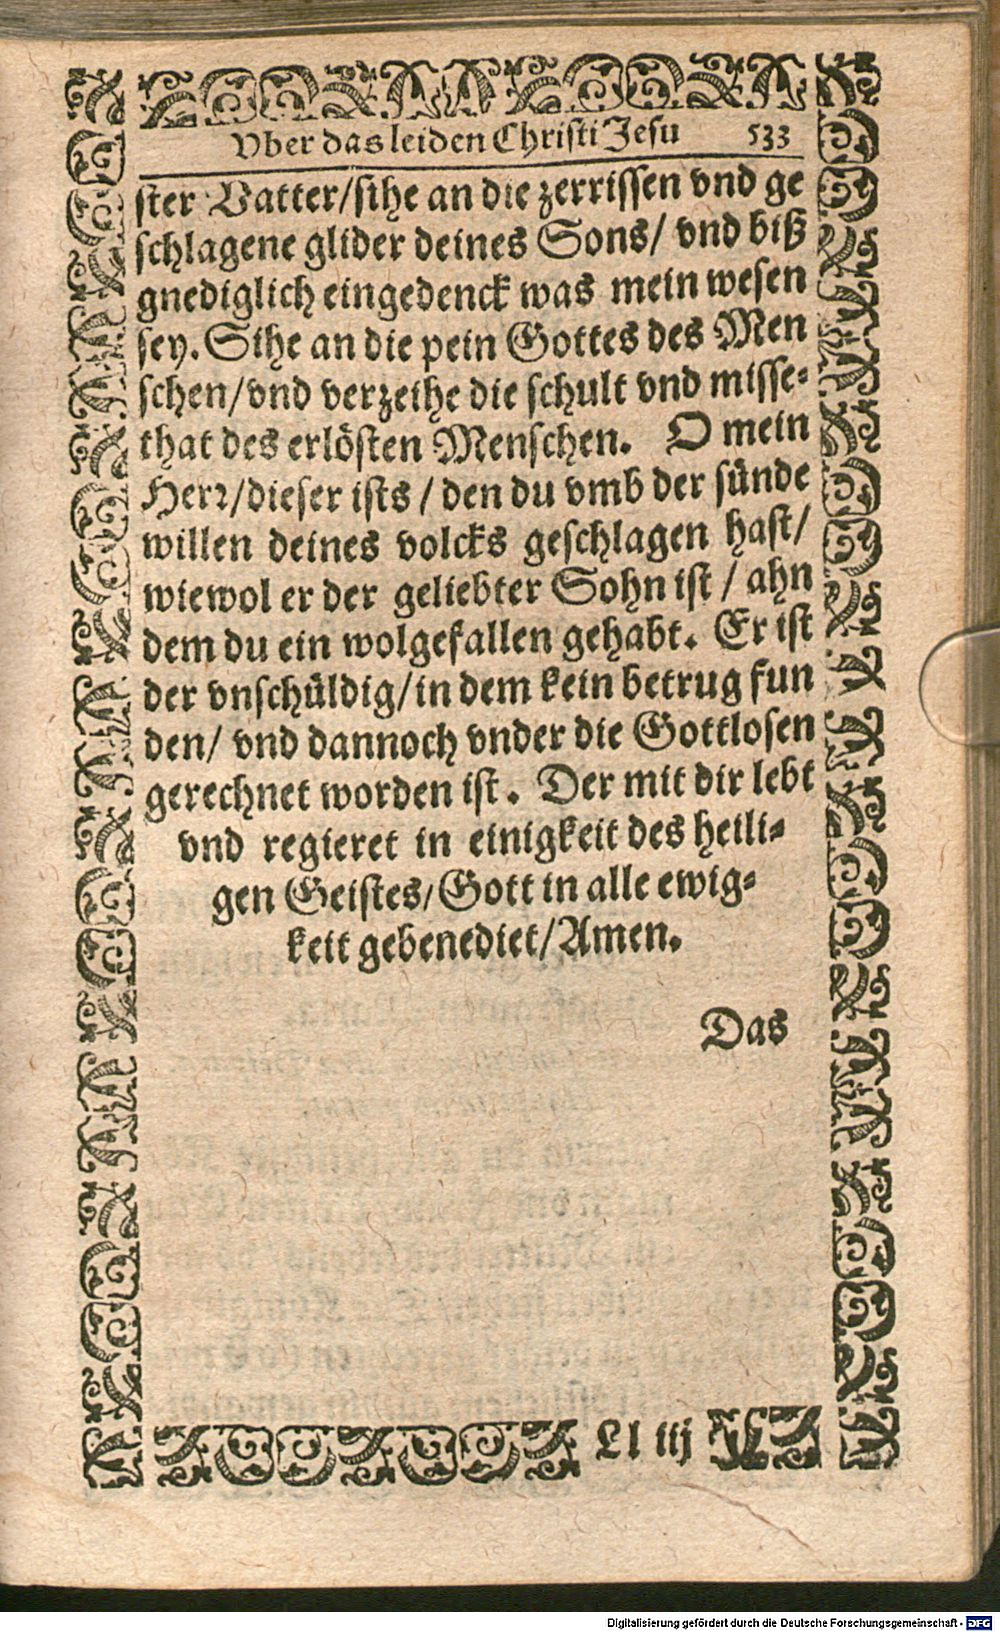 Vber das leiden Christi Jesu 533
ster Vatter/sihe an die zerrissen vnd ge
schlagene glider deines Sons/ vnd biß
gnediglich eingedenck was mein wesen
sey. Sihe an die pein Gottes des Men
schen/vnd verzeihe die schult vnd misse-
that des erlösten Menschen. O mein
Herr/dieser ists/den du vmb der sünde
willen deines volcks geschlagen hast/
wiewol er der geliebter Sohn ist/ahn
dem du ein wolgefallen gehabt. Er ist
der vnschüldig/in dem kein betrug fun
den/ vnd dannoch vnder die Gottlosen
gerechnet worden ist. Der mit dir lebt
vnd regieret in einigkeit des heili-
gen Geistes/Gott in alle ewig-
keit gebenediet/Amen.
Das
Ll iij
Digitalisierung gefördert durch die Deutsche Forschungsgemeinschaft - DFG